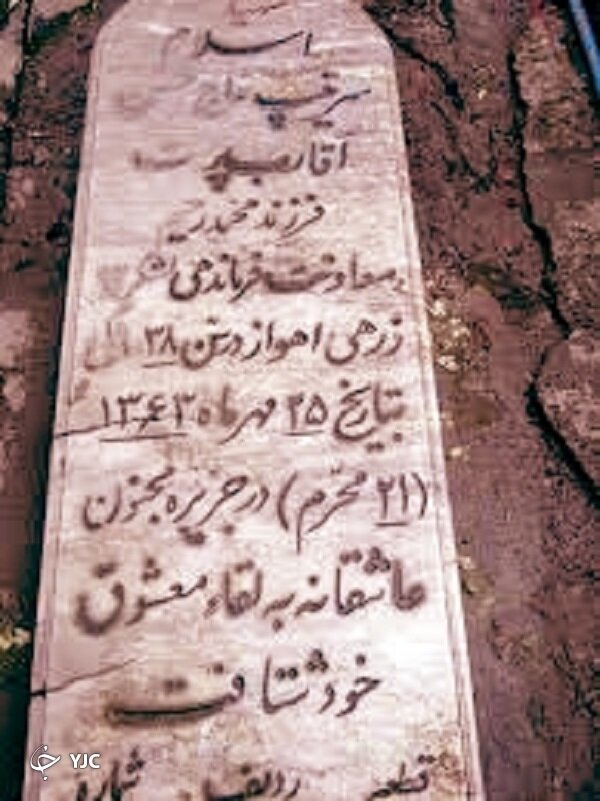 اسلام
سرتیپ
آقارب پرست
فرزند محمدرحیم
معاونت فرماندهی لشکر
زرهی اهواز در سن ۳۸ سالگی
بتاریخ ۲۵ مهر ماه ۱۳۶۳
(۲۱ محرّم) در جزیره مجنون
عاشقانه به لقاء معشوق
خود شتافت
قطعه ردیف شماره
YJC